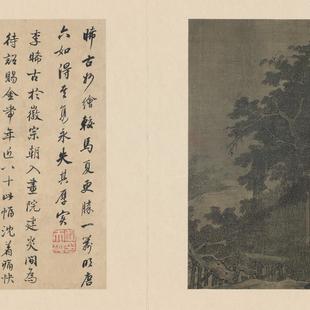 晞古妙繪較馬夏更勝一籌明唐
六如得其雋永失其厚實
李晞古於徽宗朝入畫院建炎間為
待詔賜金帶年近八十此幅沈着痛快